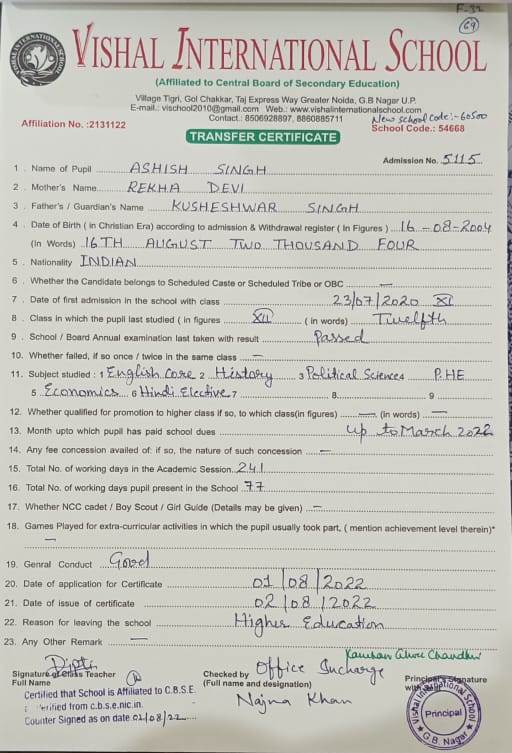 F-32
69
VISHAL INTERNATIONAL SCHOOL
(Affiliated to Central Board of Secondary Education)
Village Tigri, Gol Chakkar, Taj Express Way Greater Noida, G.B Nagar U.P.
E-mail.: vischool2010@gmail.com Web.: www.vishalinternationalschool.com
Contact.: 8506928897, 8860885711
New school code:-60500
Affiliation No. :2131122
School Code.: 54668
TRANSFER CERTIFICATE
Admission No. 5115
1 . Name of Pupil ASHISH SINGH
2 . Mother's Name REKHA DEVI
3 . Father's / Guardian's Name KUSHESHWAR SINGH
4 . Date of Birth ( in Christian Era) according to admission & Withdrawal register ( In Figures ) 16-08-2004
(In Words) 16TH AUGUST TWO THOUSAND FOUR
5 . Nationality INDIAN
6 . Whether the Candidate belongs to Scheduled Caste or Scheduled Tribe or OBC —
7 . Date of first admission in the school with class 23/07/2020 XI
8 . Class in which the pupil last studied ( in figures XII ( in words) Twelfth
9 . School / Board Annual examination last taken with result Passed
10. Whether failed, if so once / twice in the same class —
11. Subject studied : 1 English Core 2 History 3 Political Science 4 P.HE
5 Economics 6 Hindi Elective 7 8 9
12. Whether qualified for promotion to higher class if so, to which class(in figures) — (in words) —
13. Month upto which pupil has paid school dues up to March 2022
14. Any fee concession availed of: if so, the nature of such concession —
15. Total No. of working days in the Academic Session 241
16. Total No. of working days pupil present in the School 77
17. Whether NCC cadet / Boy Scout / Girl Guide (Details may be given) —
18. Games Played for extra-curricular activities in which the pupil usually took part, ( mention achievement level therein)*
—
19. Genral Conduct Good
20. Date of application for Certificate 01/08/2022
21. Date of issue of certificate 02/08/2022
22. Reason for leaving the school Higher Education
23. Any Other Remark —
Dipti
Signature of Class Teacher
Full Name
Checked by Office Incharge
(Full name and designation)
Najma Khan
Principal's Signature
with
Certified that School is Affiliated to C.B.S.E.
verified from c.b.s.e.nic.in.
Counter Signed as on date 02/08/22
Vishal International School
Principal
G.B. Nagar